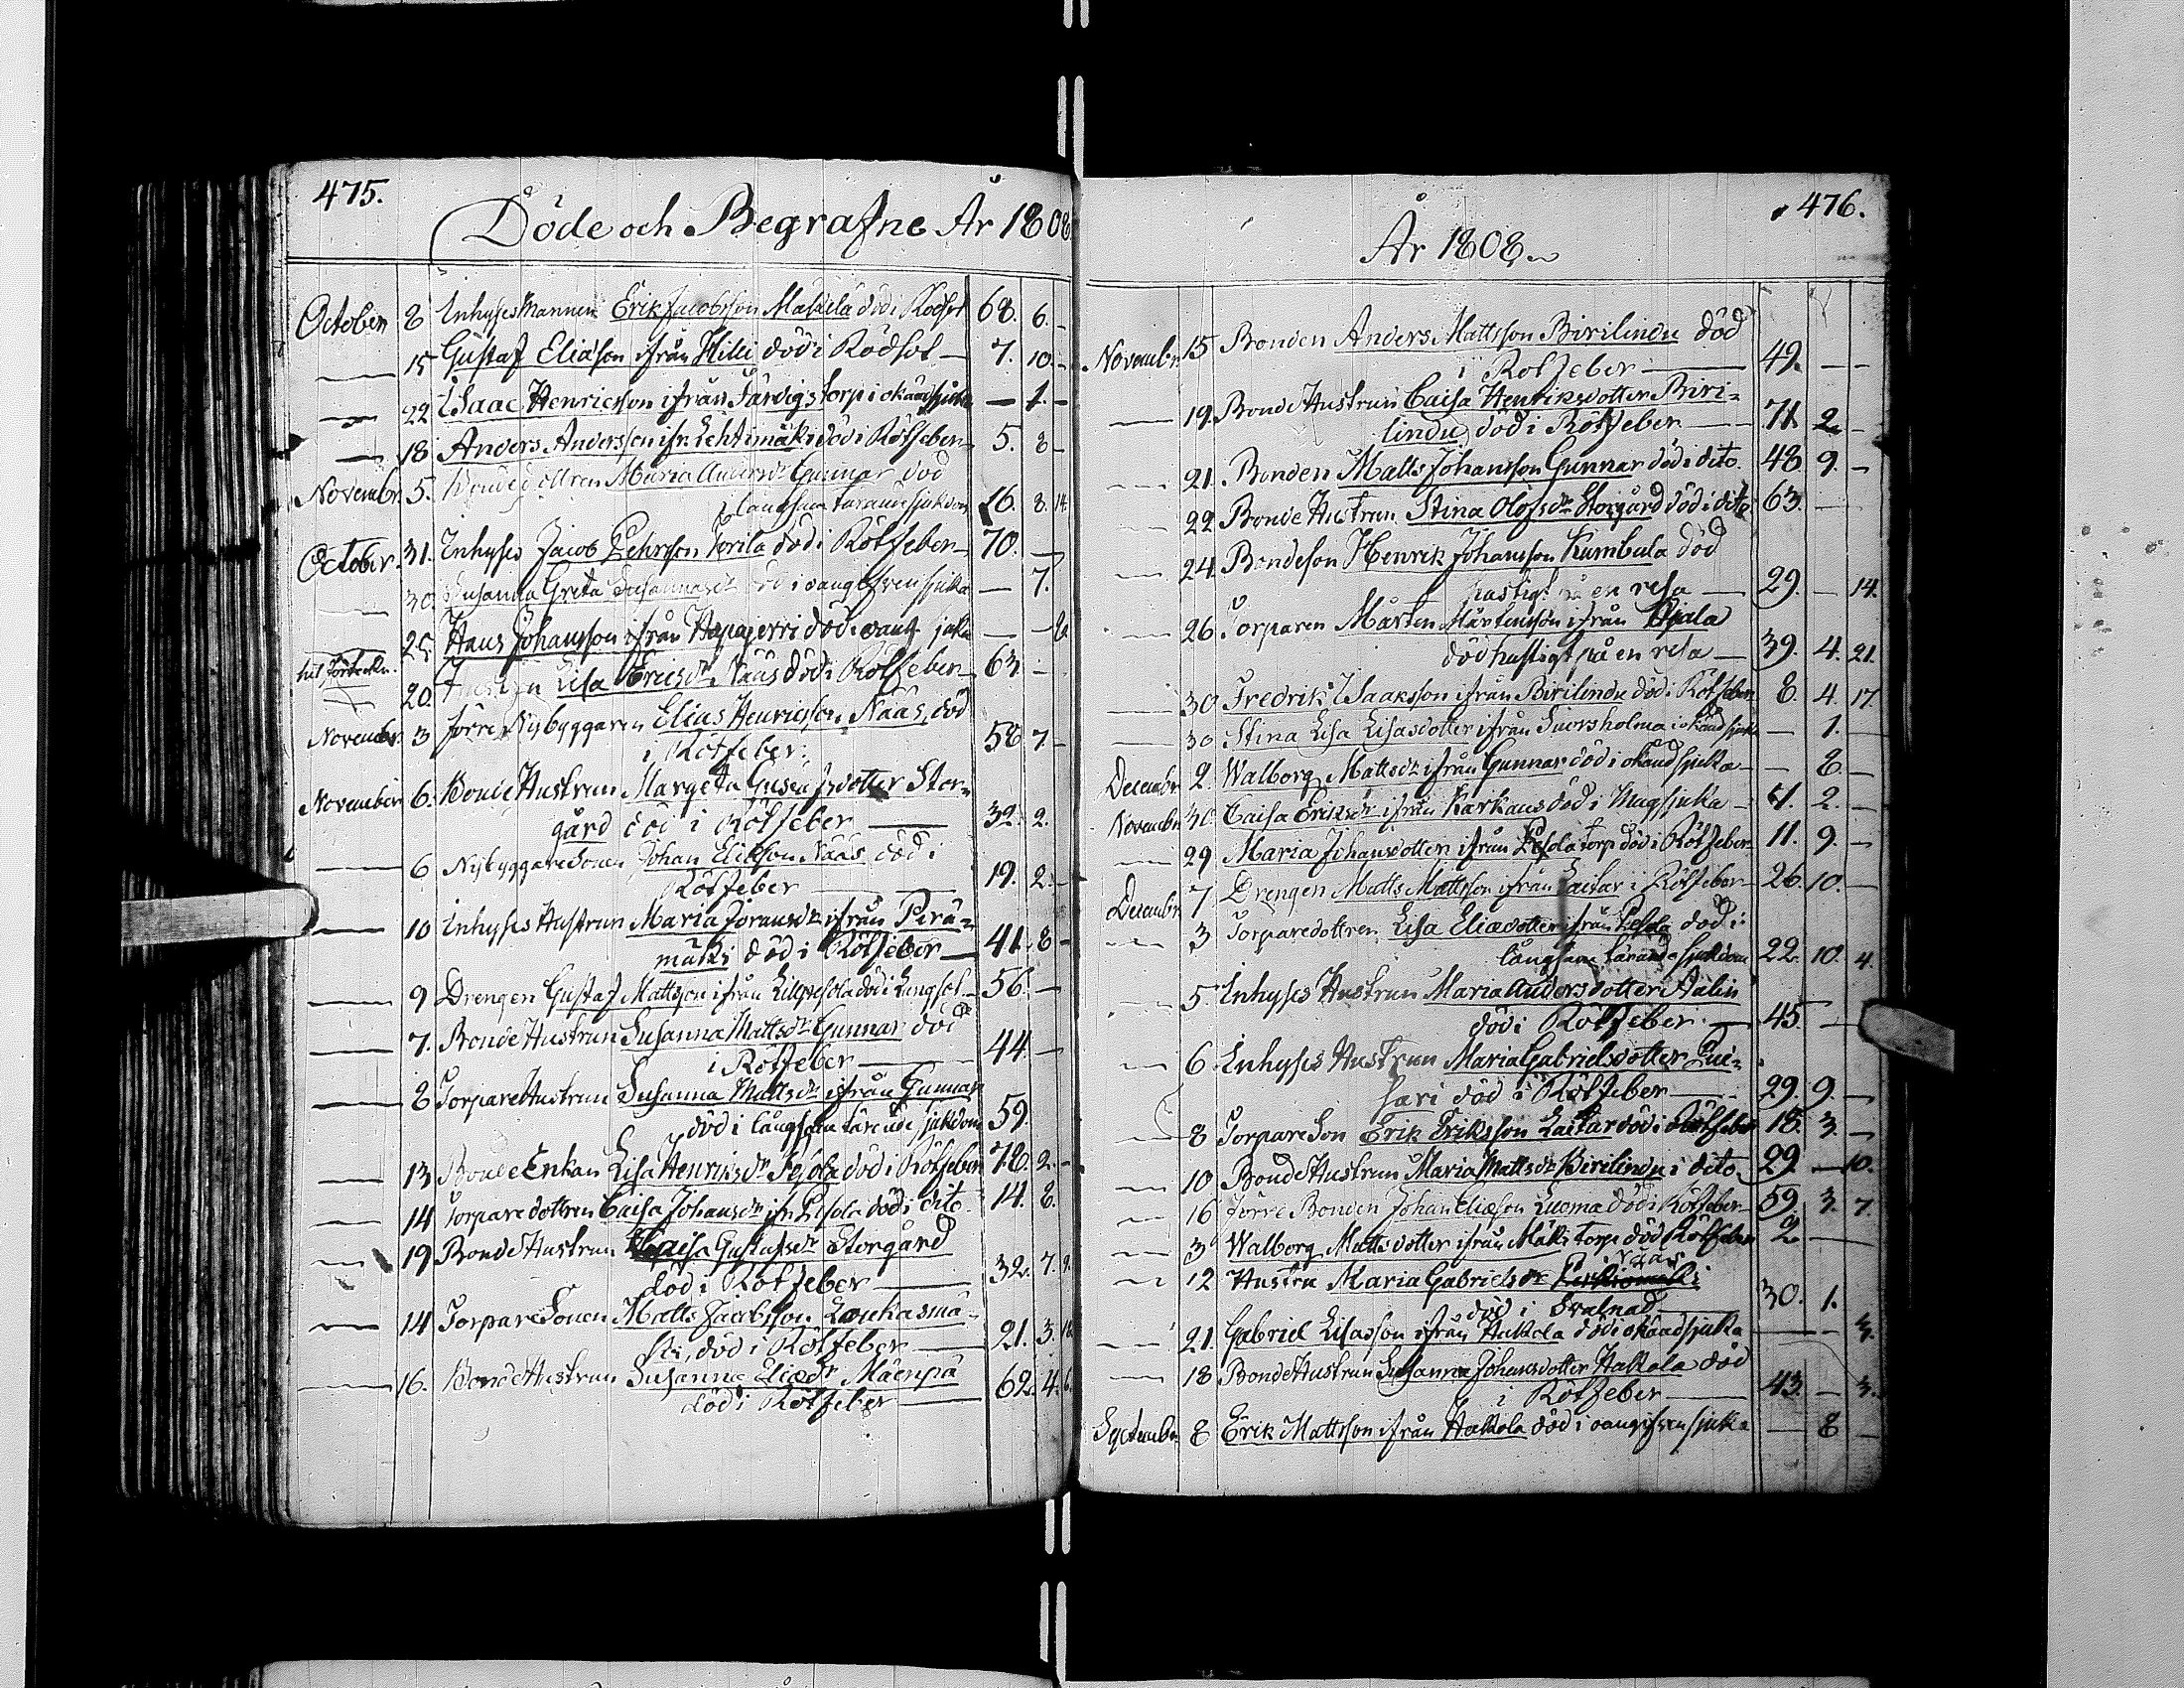 475.
Döde och Begrafne År 1808
October 8 Inhyses Mannen Erik Jacobsson Mäkelä död i Rödsot 68. 6. -
15 Gustaf Eliasson ifrån Hilli död i Rödsot 7. 10. -
22 Isaac Henricsson ifrån Färdigs torp i okändsjuka - 1. -
18 Anders Andersson ifr. Lehtimäki död i Rötfeber 5. 8 -
Novembr. 5. Bondedottren Maria Andersdr Gunnar död
i långsam tärande sjukdom 16. 8. 14
October. 31. Inhyses Jacob Pehrsson död i Rötfeber 70. -
30. Susanna Greta Susannasdr död i oangifven sjuka - 7.
25 Hans Johansson ifrån Haapajervi död i oang. sjuka - - 8
20. Lisa Ericsdr Nääs död i Rötfeber 63. -
November 3 förre Nybyggaren Elias Henricsson Nääs, död
i Rötfeber. 58 7. -
November 6. Bonde Hustrun Margeta Gustafsdotter Stor-
gård död i Rötfeber 32. 2.
6 Nybyggare Sonen Johan Eliasson Nääs död i
Rötfeber 19. 2. -
10 Inhyses Hustrun Maria Joransdr ifrån Perä-
mäki död i Rötfeber 41. 8 -
9 Drengen Gustaf Mattsson ifrån Lillpesola död i Lungsot 56. -
7. Bonde Hustrun Susanna Mattsdr Gunnar död
i Rötfeber 44. -
8 Torpare Hustrun Susanna Mattsdr ifrån Gunnar
död i långsam tärande sjukdom 59.
13 Bonde Enkan Lisa Henriksdr Pesola död i Rötfeber 78. 2. -
14 Torpare dottren Caisa Johansdr ifr Pesola död i dito. 14. 8.
19 Bonde Hustrun Caisa Gustafsdr Storgård
död i Rötfeber 32. 7. 9.
14 Torpare Sonen Matts Jacobsson Loukasmä-
ki, död i Rötfeber 21. 3.
16. Bonde Hustrun Susanna Eliædr Mäenpä
död i Rötfeber 62. 4. 6.
476.
År 1808.
Novembr. 15 Bonden Anders Mattsson Birilindu död
i Rotfeber 49. - -
19. Bonde Hustrun Caisa Henriksdotter Biri-
lindu död i Rötfeber 71. 2. -
21. Bonden Matts Johansson Gunnar död i dito. 48 9. -
22 Bonde Hustrun Stina Olofsdr Storgård död i dito 63. -
24 Bondeson Henrik Johansson Kumbula död
hastigt på en resa 29. - 14.
26 Torparen Mårten Mårtensson ifrån Hjala
död hastigt på en resa 39. 4. 21.
30 Fredrik Isaaksson ifrån Birilindu död i Rötfeber 8. 4. 17.
30 Stina Lisa Lisasdotter ifrån i okänd sjuka - 1. -
Decembr 2. Walborg Mattsdr ifrån Gunnar död i okändsjuka - 8. -
Novembr 30. Caisa Ericsdr ifrån Karkaus död i Magsjuka 41. 2. -
29 Maria Johansdotter ifrån Pesola torp död i Rötfeber 11. 9. -
Decembr 7 Drengen Matts Mattsson ifrån Laitar i Rötfeber 26. 10. -
3 Torparedottren Lisa Eliædotter ifrån Pesola död i
långsam tärande sjukdom 22. 10. 4.
5 Inhyses Hustrun Maria Andersdotter Aalin
död i Rötfeber. 45. -
6 Inhyses Hustrun Maria Gabrielsdotter Lui-
sari död i Rötfeber 29. 9. -
8 Torpare Son Erik Eriksson Laitar död i Rötfeber 18. 3. -
10 Bonde Hustrun Maria Mattsdr Birilindu i dito 29. - 10.
16 Förre Bonden Johan Eliæson Luoma död i Rötfeber 59. 3. 7
3 Walborg Mattsdotter ifrån Mäki torp död Rötfeber 2. -
12 Hustru Maria Gabrielsdr Nääs
död i Svalnad 30. 1.
21. Gabriel Lisasson ifrån Hakola död i okändsjuka - - 3.
18 Bonde Hustrun Susanna Johansdotter Hakola död
i Rötfeber 43. - 3.
September 8 Erik Mattsson ifrån Hakola död i oangifven sjuka - 8 -